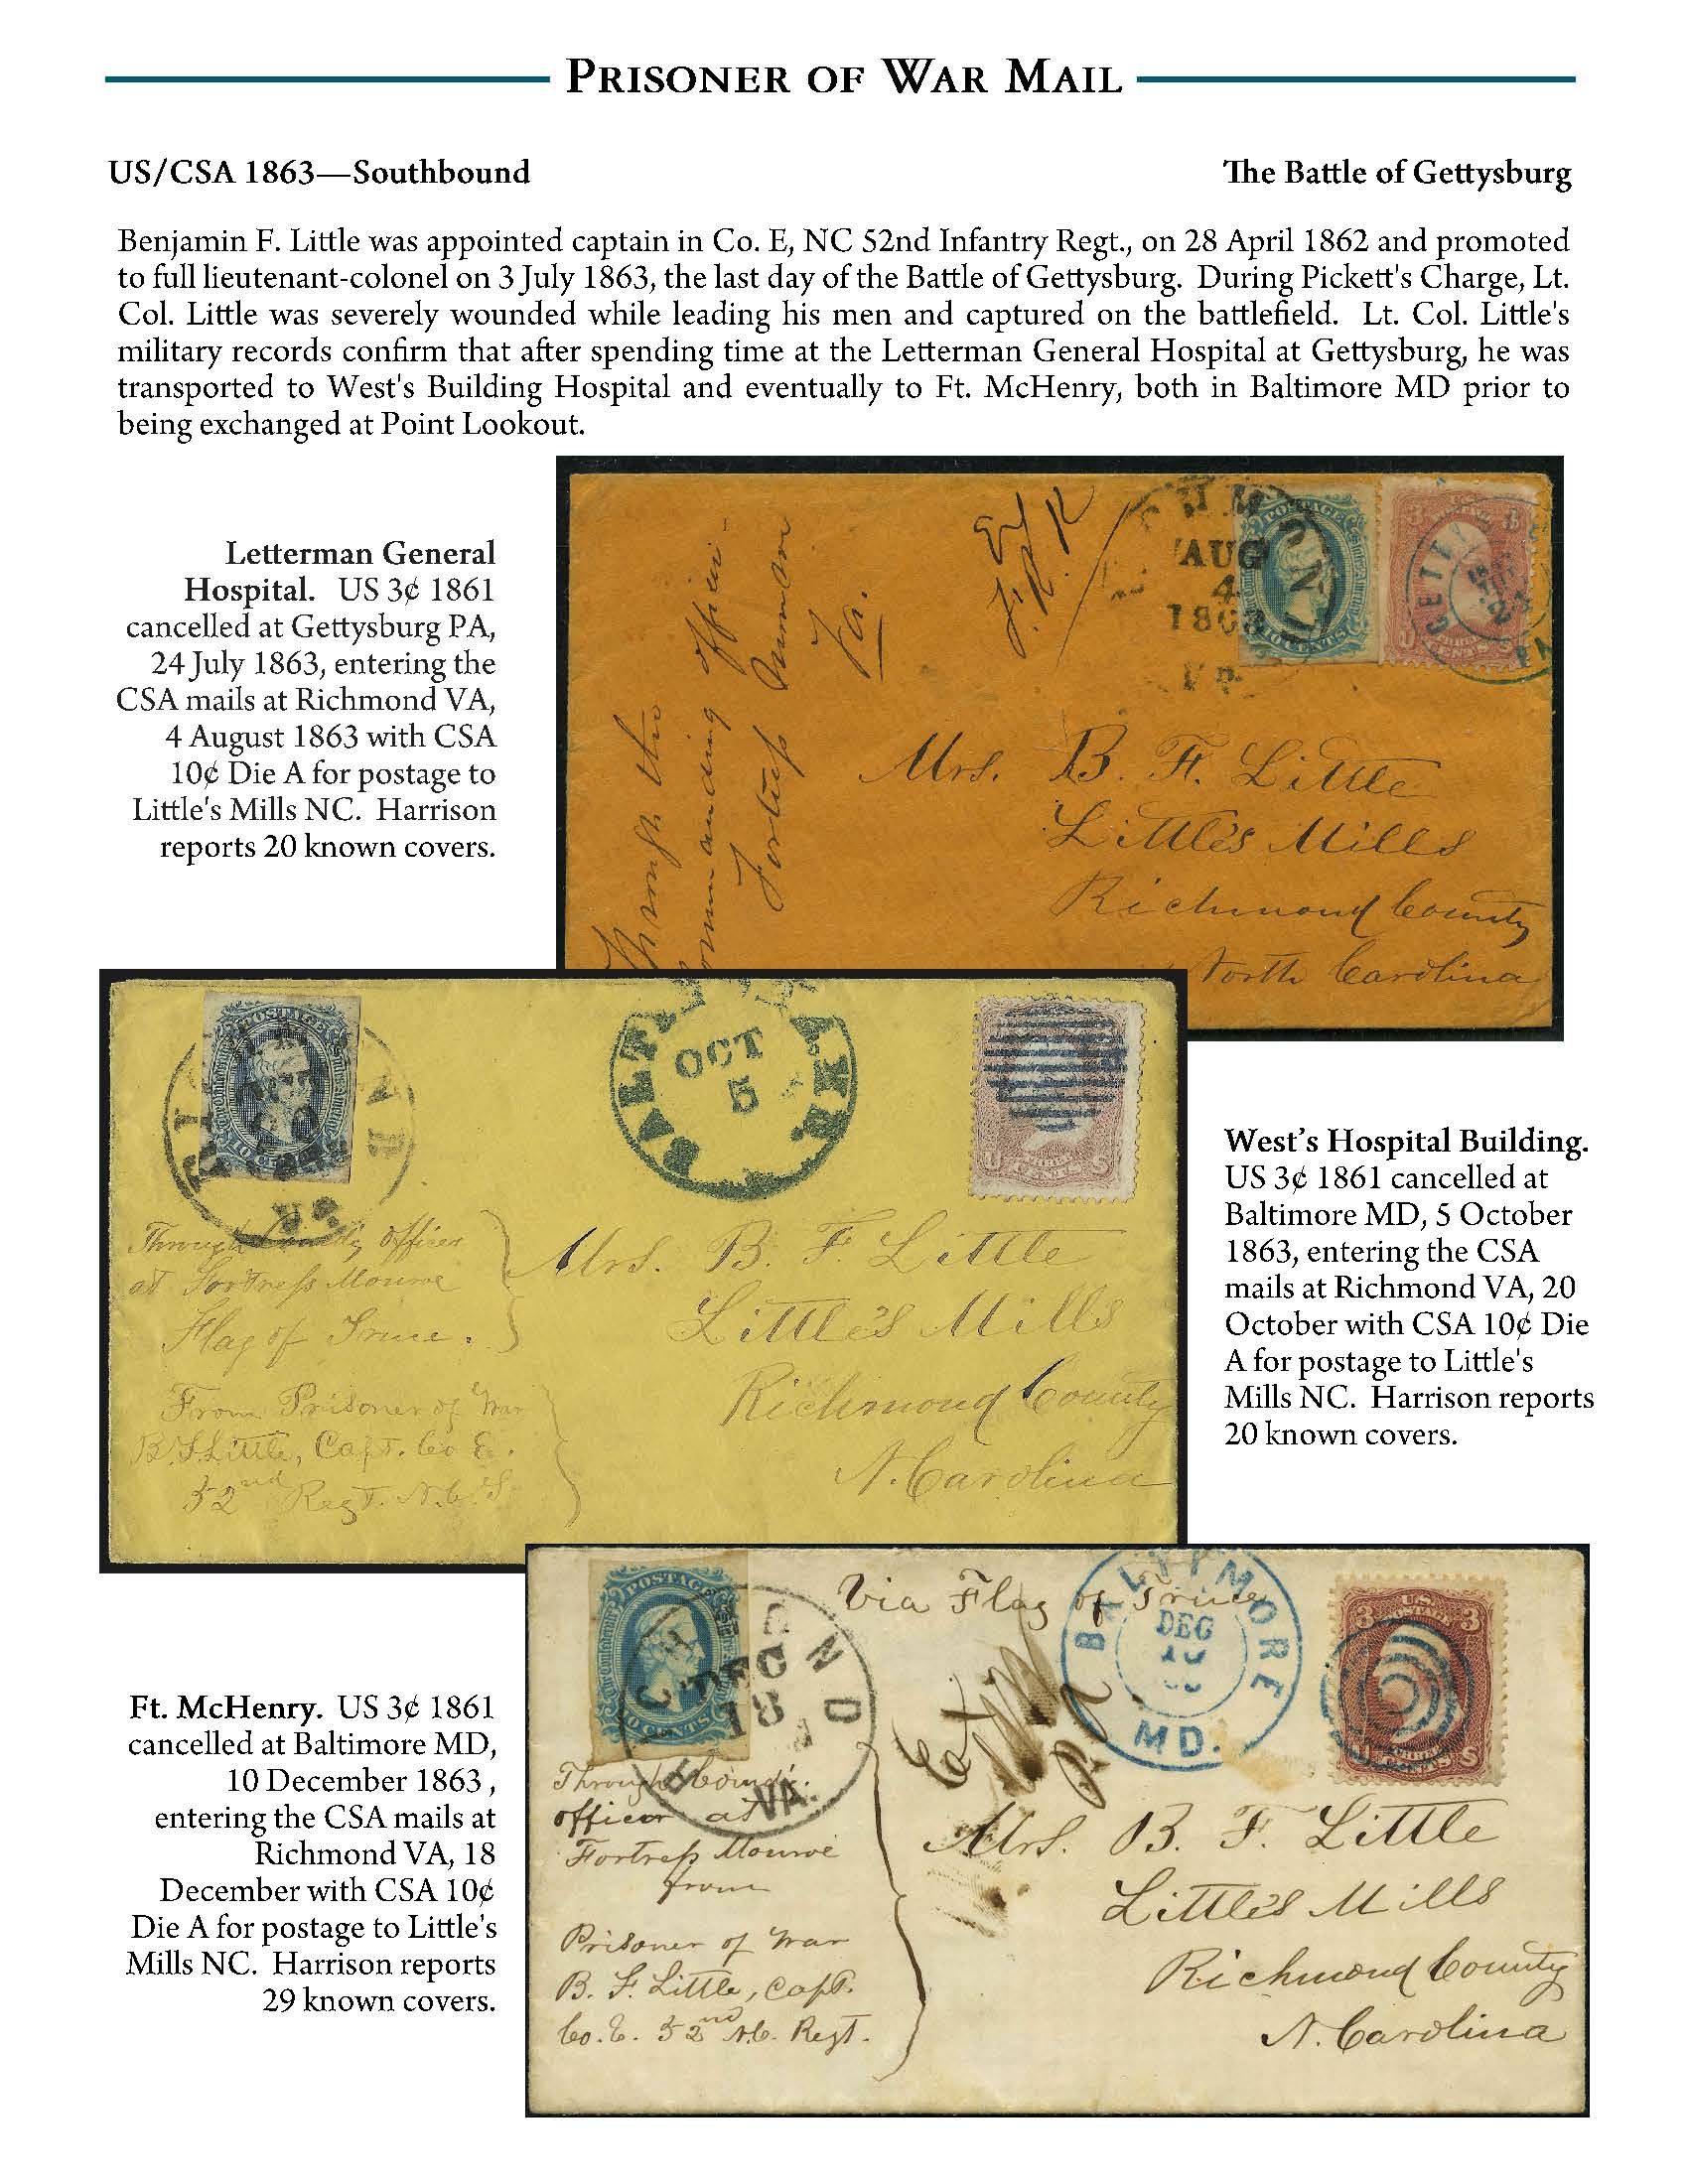 PRISONER OF WAR MAIL
US/CSA 1863—Southbound
The Battle of Gettysburg
Benjamin F. Little was appointed captain in Co. E, NC 52nd Infantry Regt., on 28 April 1862 and promoted
to full lieutenant-colonel on 3 July 1863, the last day of the Battle of Gettysburg. During Pickett's Charge, Lt.
Col. Little was severely wounded while leading his men and captured on the battlefield. Lt. Col. Little's
military records confirm that after spending time at the Letterman General Hospital at Gettysburg, he was
transported to West's Building Hospital and eventually to Ft. McHenry, both in Baltimore MD prior to
being exchanged at Point Lookout.
Letterman General
Hospital. US 3¢ 1861
cancelled at Gettysburg PA,
24 July 1863, entering the
CSA mails at Richmond VA,
4 August 1863 with CSA
10¢ Die A for postage to
Little's Mills NC. Harrison
reports 20 known covers.
Through the
officer
Fortress
Va.
AUG
4
1863
POSTAGE
Mrs. B. F. Little
Little's Mills
Richmond County
North Carolina
POSTAGE
OCT
5
Through Comdg officer
at Fortress Monroe
Flag of Truce.
From Prisoner of War
B. F. Little, Capt. Co E.
52nd Regt. N.C.
Mrs. B. F. Little
Little's Mills
Richmond County
N. Carolina
West's Hospital Building.
US 3¢ 1861 cancelled at
Baltimore MD, 5 October
1863, entering the CSA
mails at Richmond VA, 20
October with CSA 10¢ Die
A for postage to Little's
Mills NC. Harrison reports
20 known covers.
Ft. McHenry. US 3¢ 1861
cancelled at Baltimore MD,
10 December 1863 ,
entering the CSA mails at
Richmond VA, 18
December with CSA 10¢
Die A for postage to Little's
Mills NC. Harrison reports
29 known covers.
POSTAGE
DEC
18
VA.
Via Flag of Truce
BALTIMORE
DEC
10
MD.
U.S.
3 3
Through Comdg.
officer at
Fortress Monroe
from
Prisoner of War
B. F. Little, Capt.
Co. E. 52nd N.C. Regt.
Mrs. B. F. Little
Little's Mills
Richmond County
N. Carolina